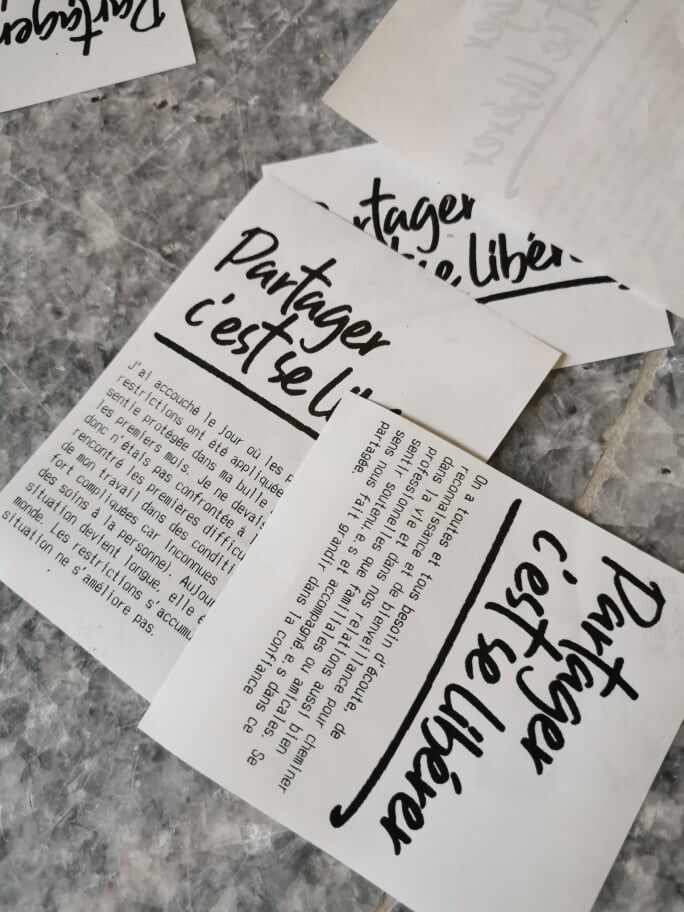 Partager
Partager
libér
Partager
c'est se
J'ai accouché le jour où les
restrictions ont été appliquée
sentie protégée dans ma bulle
les premiers mois. Je ne devais
donc n'étais pas confrontée à
rencontré les premières difficu
de mon travail dans des conditi
fort compliquées car inconnues
des soins à la personne). Aujou
situation devient longue, elle
monde. Les restrictions s'accumu
situation ne s'améliore pas.
Partager
c'est se libérer
On a toutes et tous besoin d'écoute, de
reconnaissance et de bienveillance pour cheminer
dans la vie et dans nos relations aussi bien
professionnelles que familiales ou amicales. Se
sentir soutenu.e.s et accompagné.e.s dans ce
sens nous fait grandir dans la confiance
partagée.